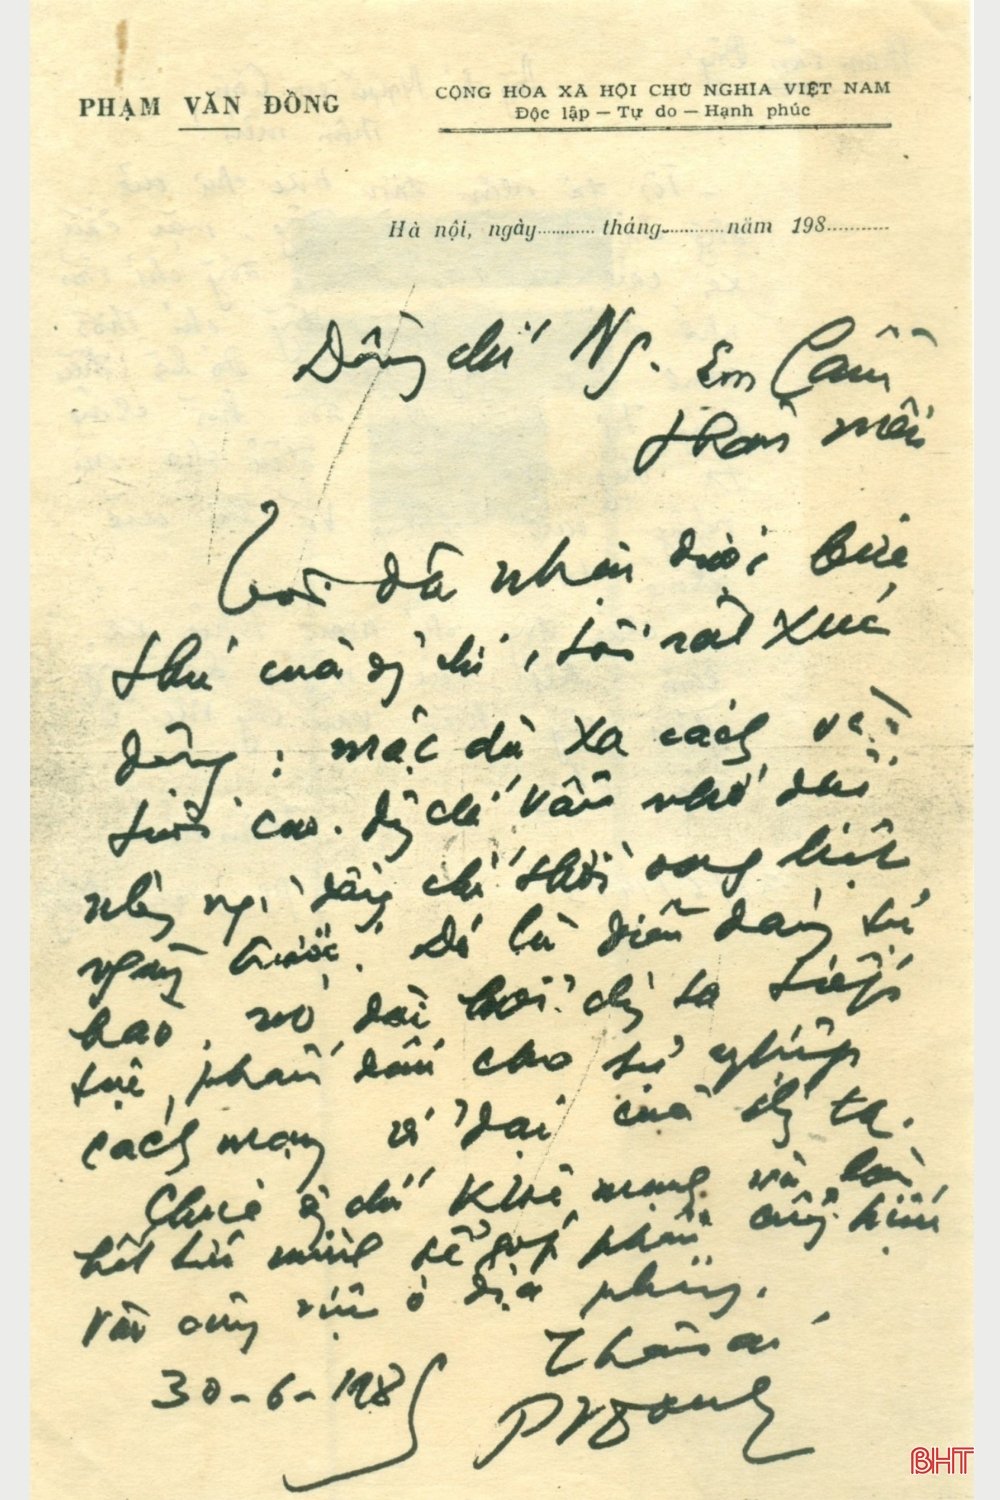 PHẠM VĂN ĐỒNG
CỘNG HÒA XÃ HỘI CHỦ NGHĨA VIỆT NAM
Độc lập — Tự do — Hạnh phúc
Hà nội, ngày............ tháng............ năm 198............
Đồng chí Ng. Em Cầm
thân mến
Tôi đã nhận được bức
thư của đ/ chí, tôi rất xúc
động: mặc dù xa cách và
tuổi cao. đ/ chí vẫn nhớ đến
những ng. đồng chí thời oanh liệt
ngày trước. Đó là điều đáng tự
hào, nó đòi hỏi ch/ ta tiếp
tục phấn đấu cho sự nghiệp
cách mạng vĩ đại của ch/ ta.
Chúc đ/ chí khỏe mạnh và làm
hết sức mình để góp phần cống hiến
vào công việc ở địa phương.
Thân ái
30-6-198
PVĐong
BHT